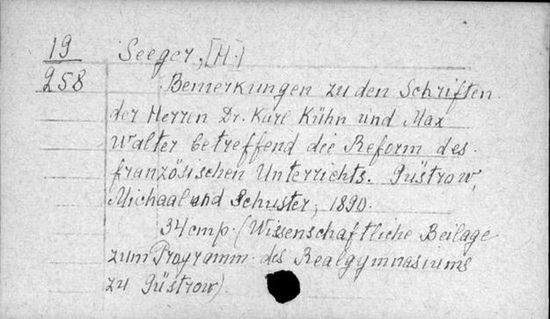 19 Seeger, [H.]
258 Bemerkungen zu den Schriften
der Herren Dr. Karl Kühn und Max
Walter betreffend die Reform des
französischen Unterrichts. Güstrow,
Michaal und Schuster, 1890.
34 стр. (Wissenschaftliche Beilage
zum Programm des Realgymnasiums
zu Güstrow)